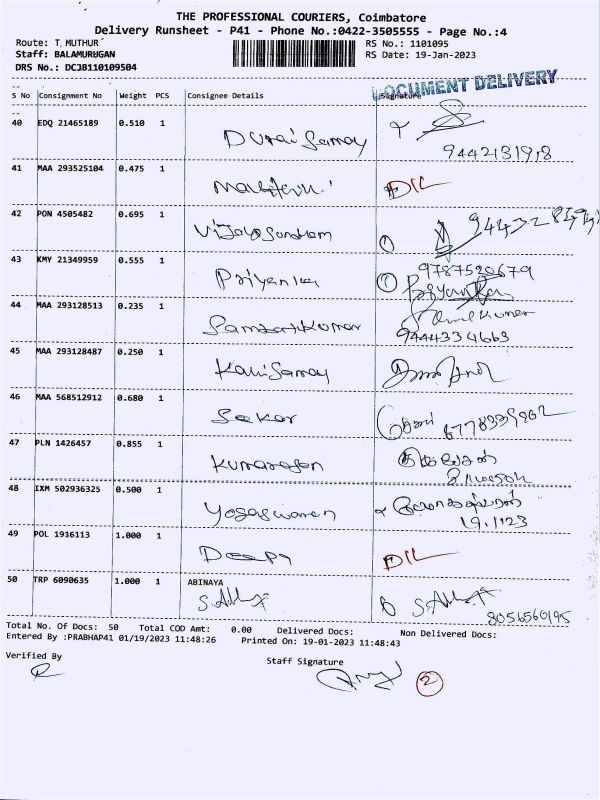 THE PROFESSIONAL COURIERS, Coimbatore
Delivery Runsheet - P41 - Phone No.:0422-3505555 - Page No.:4
Route: T. MUTHUR
RS No.: 1101095
Staff: BALAMURUGAN
RS Date: 19-Jan-2023
DRS No.: DCJB110109504
DOCUMENT DELIVERY
S No Consignment No Weight PCS Consignee Details Signature
40 EDQ 21465189 0.510 1
Durai Samay
41 MAA 293525104 0.475 1
DIL
42 PON 4505482 0.695 1
Vijaya Sundham
43 KMY 21349959 0.555 1
9787520679
Priyanka
44 MAA 293128513 0.235 1
9444334663
45 MAA 293128487 0.250 1
Kavi Samay
46 MAA 568512912 0.680 1
Sekar
47 PLN 1426457 0.855 1
Kumaresan
48 IXM 502936325 0.500 1
Yogaswaren
19.1.23
49 POL 1916113 1.000 1
Deepa DIL
50 TRP 6090635 1.000 1 ABINAYA
8056560195
Total No. Of Docs: 50 Total COD Amt: 0.00 Delivered Docs: Non Delivered Docs:
Entered By :PRABHAP41 01/19/2023 11:48:26 Printed On: 19-01-2023 11:48:43
Verified By
Staff Signature
2